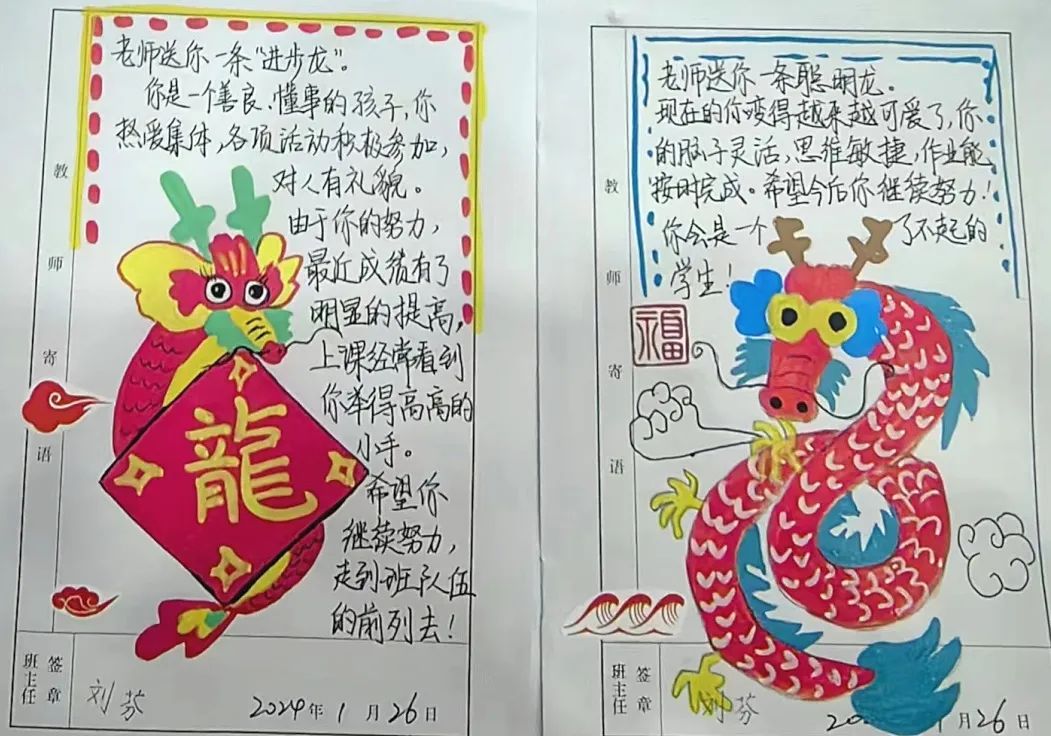 老师送你一条“进步龙”。
你是一个善良、懂事的孩子，你
热爱集体，各项活动积极参加，
对人有礼貌。
由于你的努力，
最近成绩有了
明显的提高，
上课经常看到
你举得高高的
小手。
希望你
继续努力，
走到班队伍
的前列去！
龍
教师寄语
班主任签章
刘芬
2024年1月26日
老师送你一条聪明龙。
现在的你变得越来越可爱了，你
的脑子灵活，思维敏捷，作业能
按时完成。希望今后你继续努力！
你会是一个了不起的
学生！
福
教师寄语
班主任签章
刘芬
月26日